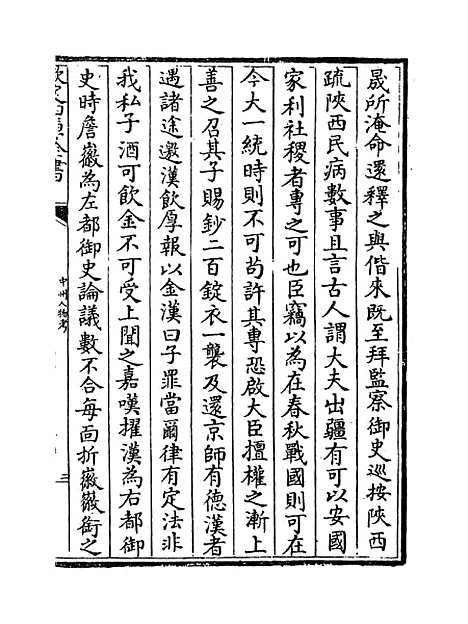 晟所淹命還釋之與偕來既至拜監察御史巡按陜西
疏陜西民病數事且言古人謂大夫出疆有可以安國
家利社稷者專之可也臣竊以為在春秋戰國則可在
今大一統時則不可茍許其專恐啟大臣擅權之漸上
善之召其子賜鈔二百錠衣一襲及還京師有德漢者
遇諸途邀漢飲厚報以金漢曰子罪當爾律有定法非
我私子酒可飲金不可受上聞之嘉嘆擢漢為右都御
史時詹徽為左都御史論議數不合每面折徽徽銜之
欽定四庫全書
中州人物考
三